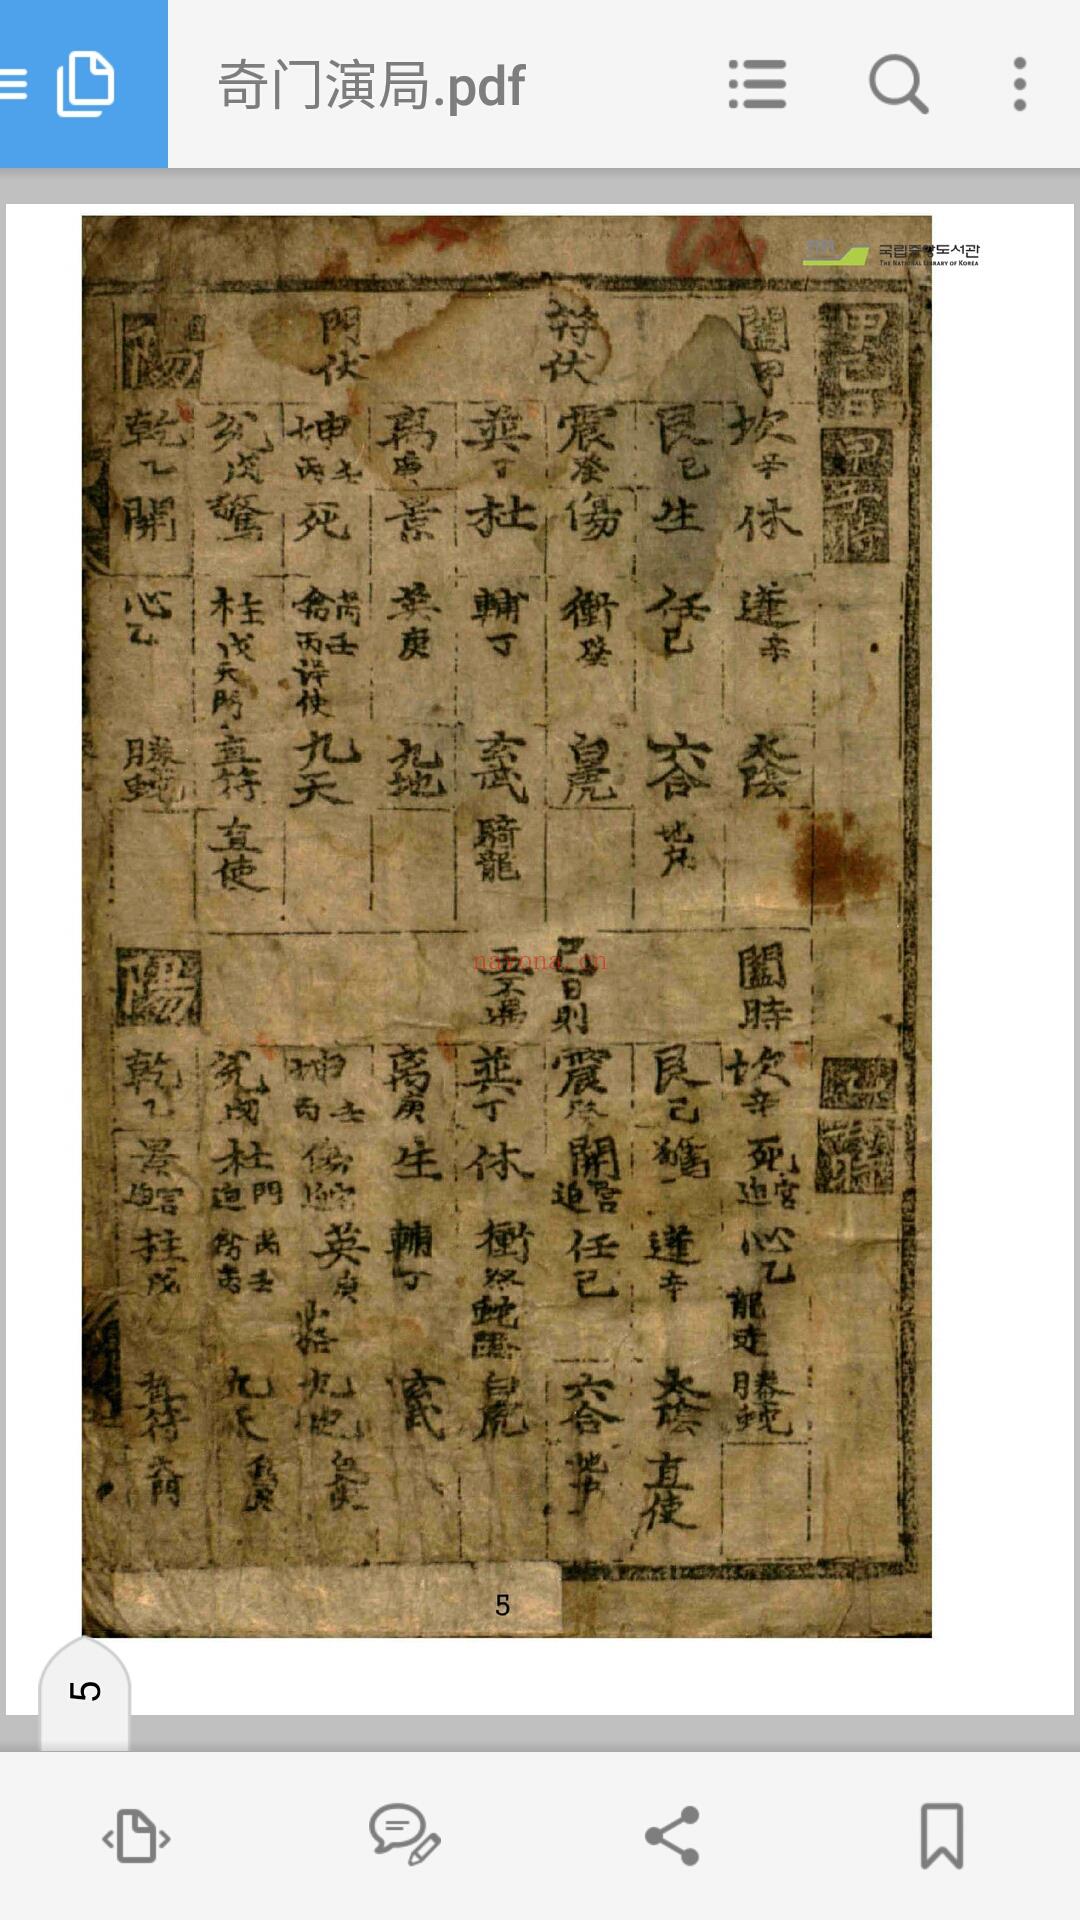 奇门演局.pdf
국립중앙도서관
THE NATIONAL LIBRARY OF KOREA
甲己日
甲子時
闔甲
符伏
門伏
陽
坎辛休蓬辛太陰
艮己生任己六合地戶
震癸傷衝癸白虎
巽丁杜輔丁玄武騎龍
离庚景英庚九地
坤丙壬死禽芮丙壬詳使九天
兌戊驚柱戊天門直符直使
乾乙開心乙螣蛇
時
闔時
己日則
不遇
陽
坎辛死迫宮心乙龍走螣蛇
艮己驚蓬辛太陰直使
震癸開迫宮任己六合地戶
巽丁休衝癸蛇白虎
离庚生輔丁玄武
坤丙壬傷迫宮英庚九地
兌戊杜迫門禽芮丙壬九天
乾乙景迫宮柱戊直符天門
nayona.cn
5
5